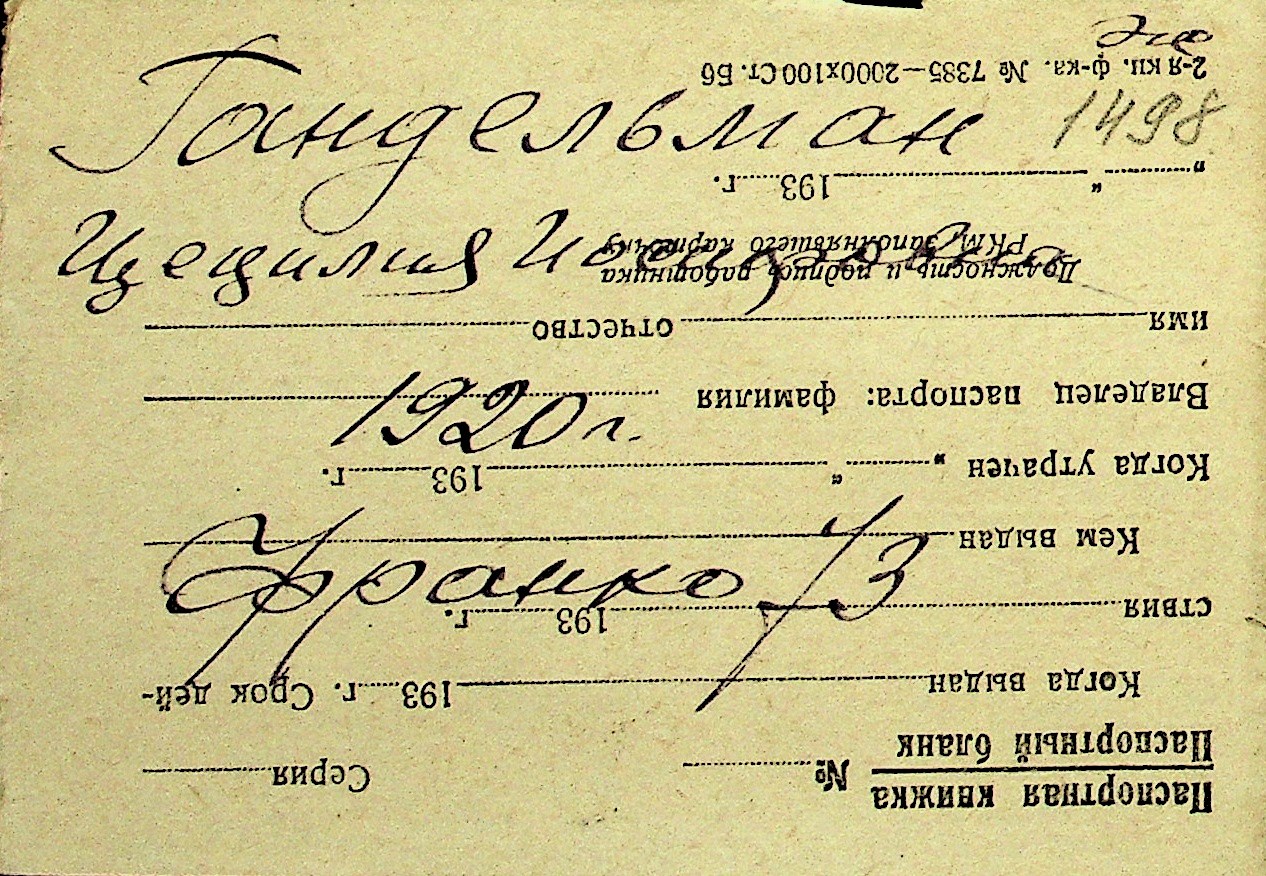 Гандельман 1498
Цецилия Иосифовна
1920 г.
Франко 3
Паспортная книжка
Паспортный бланк
№ Серия
Когда выдан 193 г. Срок дей-
ствия 193 г.
Кем выдан
Когда утрачен „ “ 193 г.
Владелец паспорта: фамилия
имя отчество
Должность и подпись работника
РКМ, заполнявшего карточку
„ “ 193 г.
2-я кн. ф-ка. № 7385—2000х100 Ст. Б6